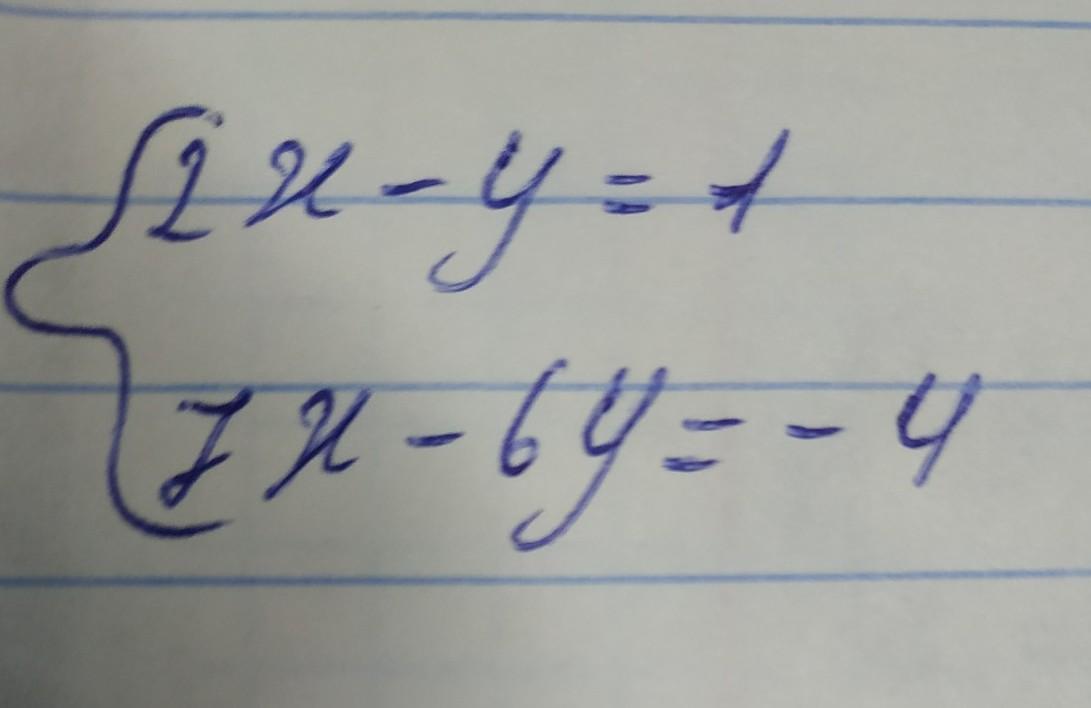 2x - y = 1
7x - 6y = - 4